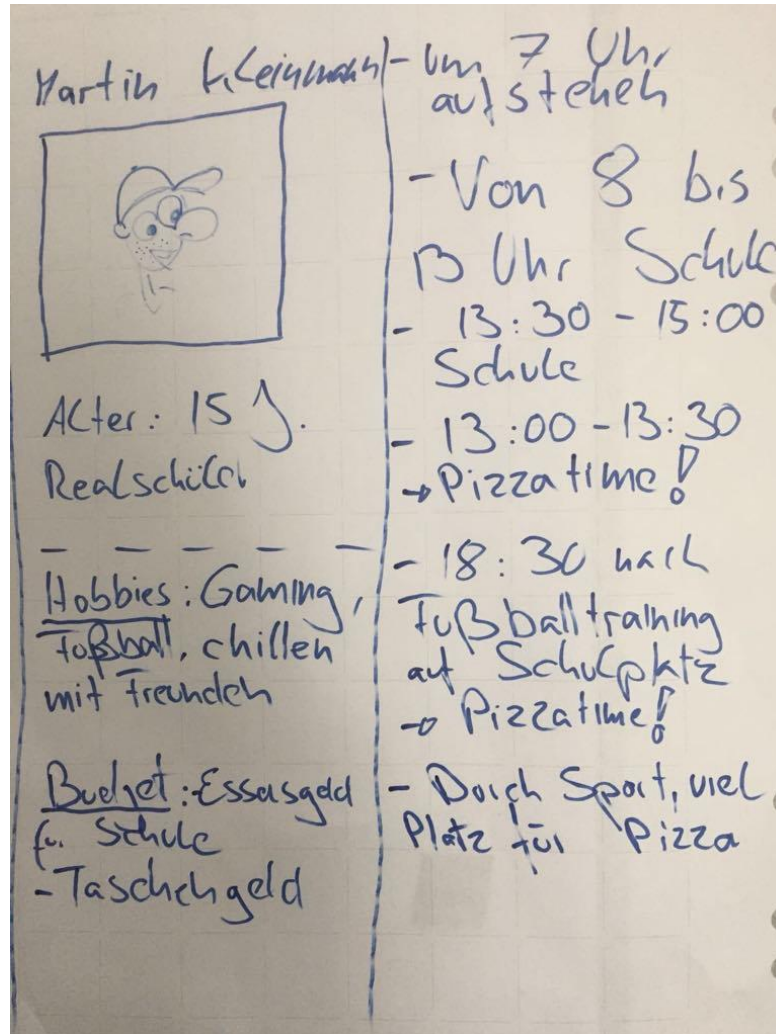 Martin Kleinmann
Alter: 15 J.
Realschüler
Hobbies: Gaming,
Fußball, chillen
mit Freunden
Budget: Essensgeld
f. Schule
- Taschengeld
- Um 7 Uhr
aufstehen
- Von 8 bis
13 Uhr Schule
- 13:30 - 15:00
Schule
- 13:00 - 13:30
→ Pizzatime!
- 18:30 nach
Fußballtraining
auf Schulplatz
→ Pizzatime!
- Durch Sport, viel
Platz für Pizza